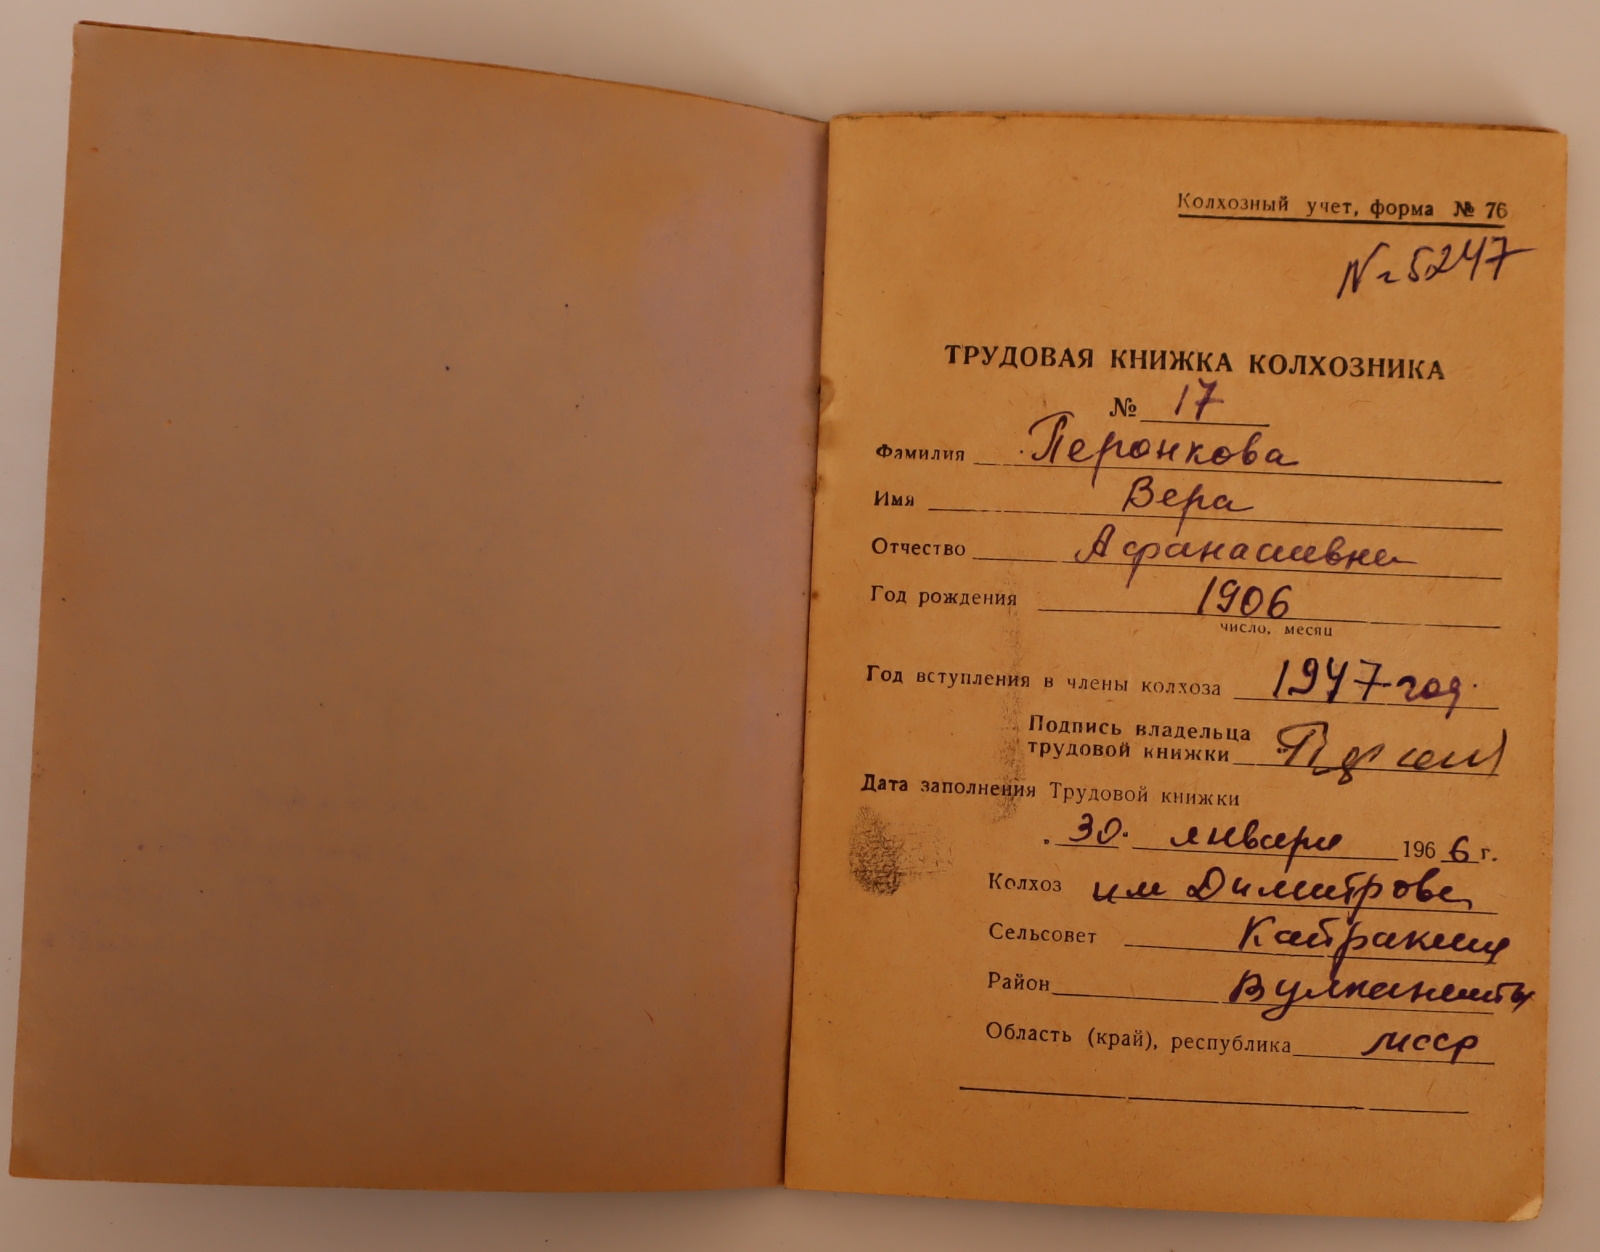 Колхозный учет, форма № 76
№ 5247
ТРУДОВАЯ КНИЖКА КОЛХОЗНИКА
№ 17
Фамилия Перонкова
Имя Вера
Отчество Афанасиевна
Год рождения 1906
число, месяц
Год вступления в члены колхоза 1947 год.
Подпись владельца
трудовой книжки
Дата заполнения Трудовой книжки
30. января 1966 г.
Колхоз им Димитрова
Сельсовет
Район Вулканешты
Область (край), республика МССР